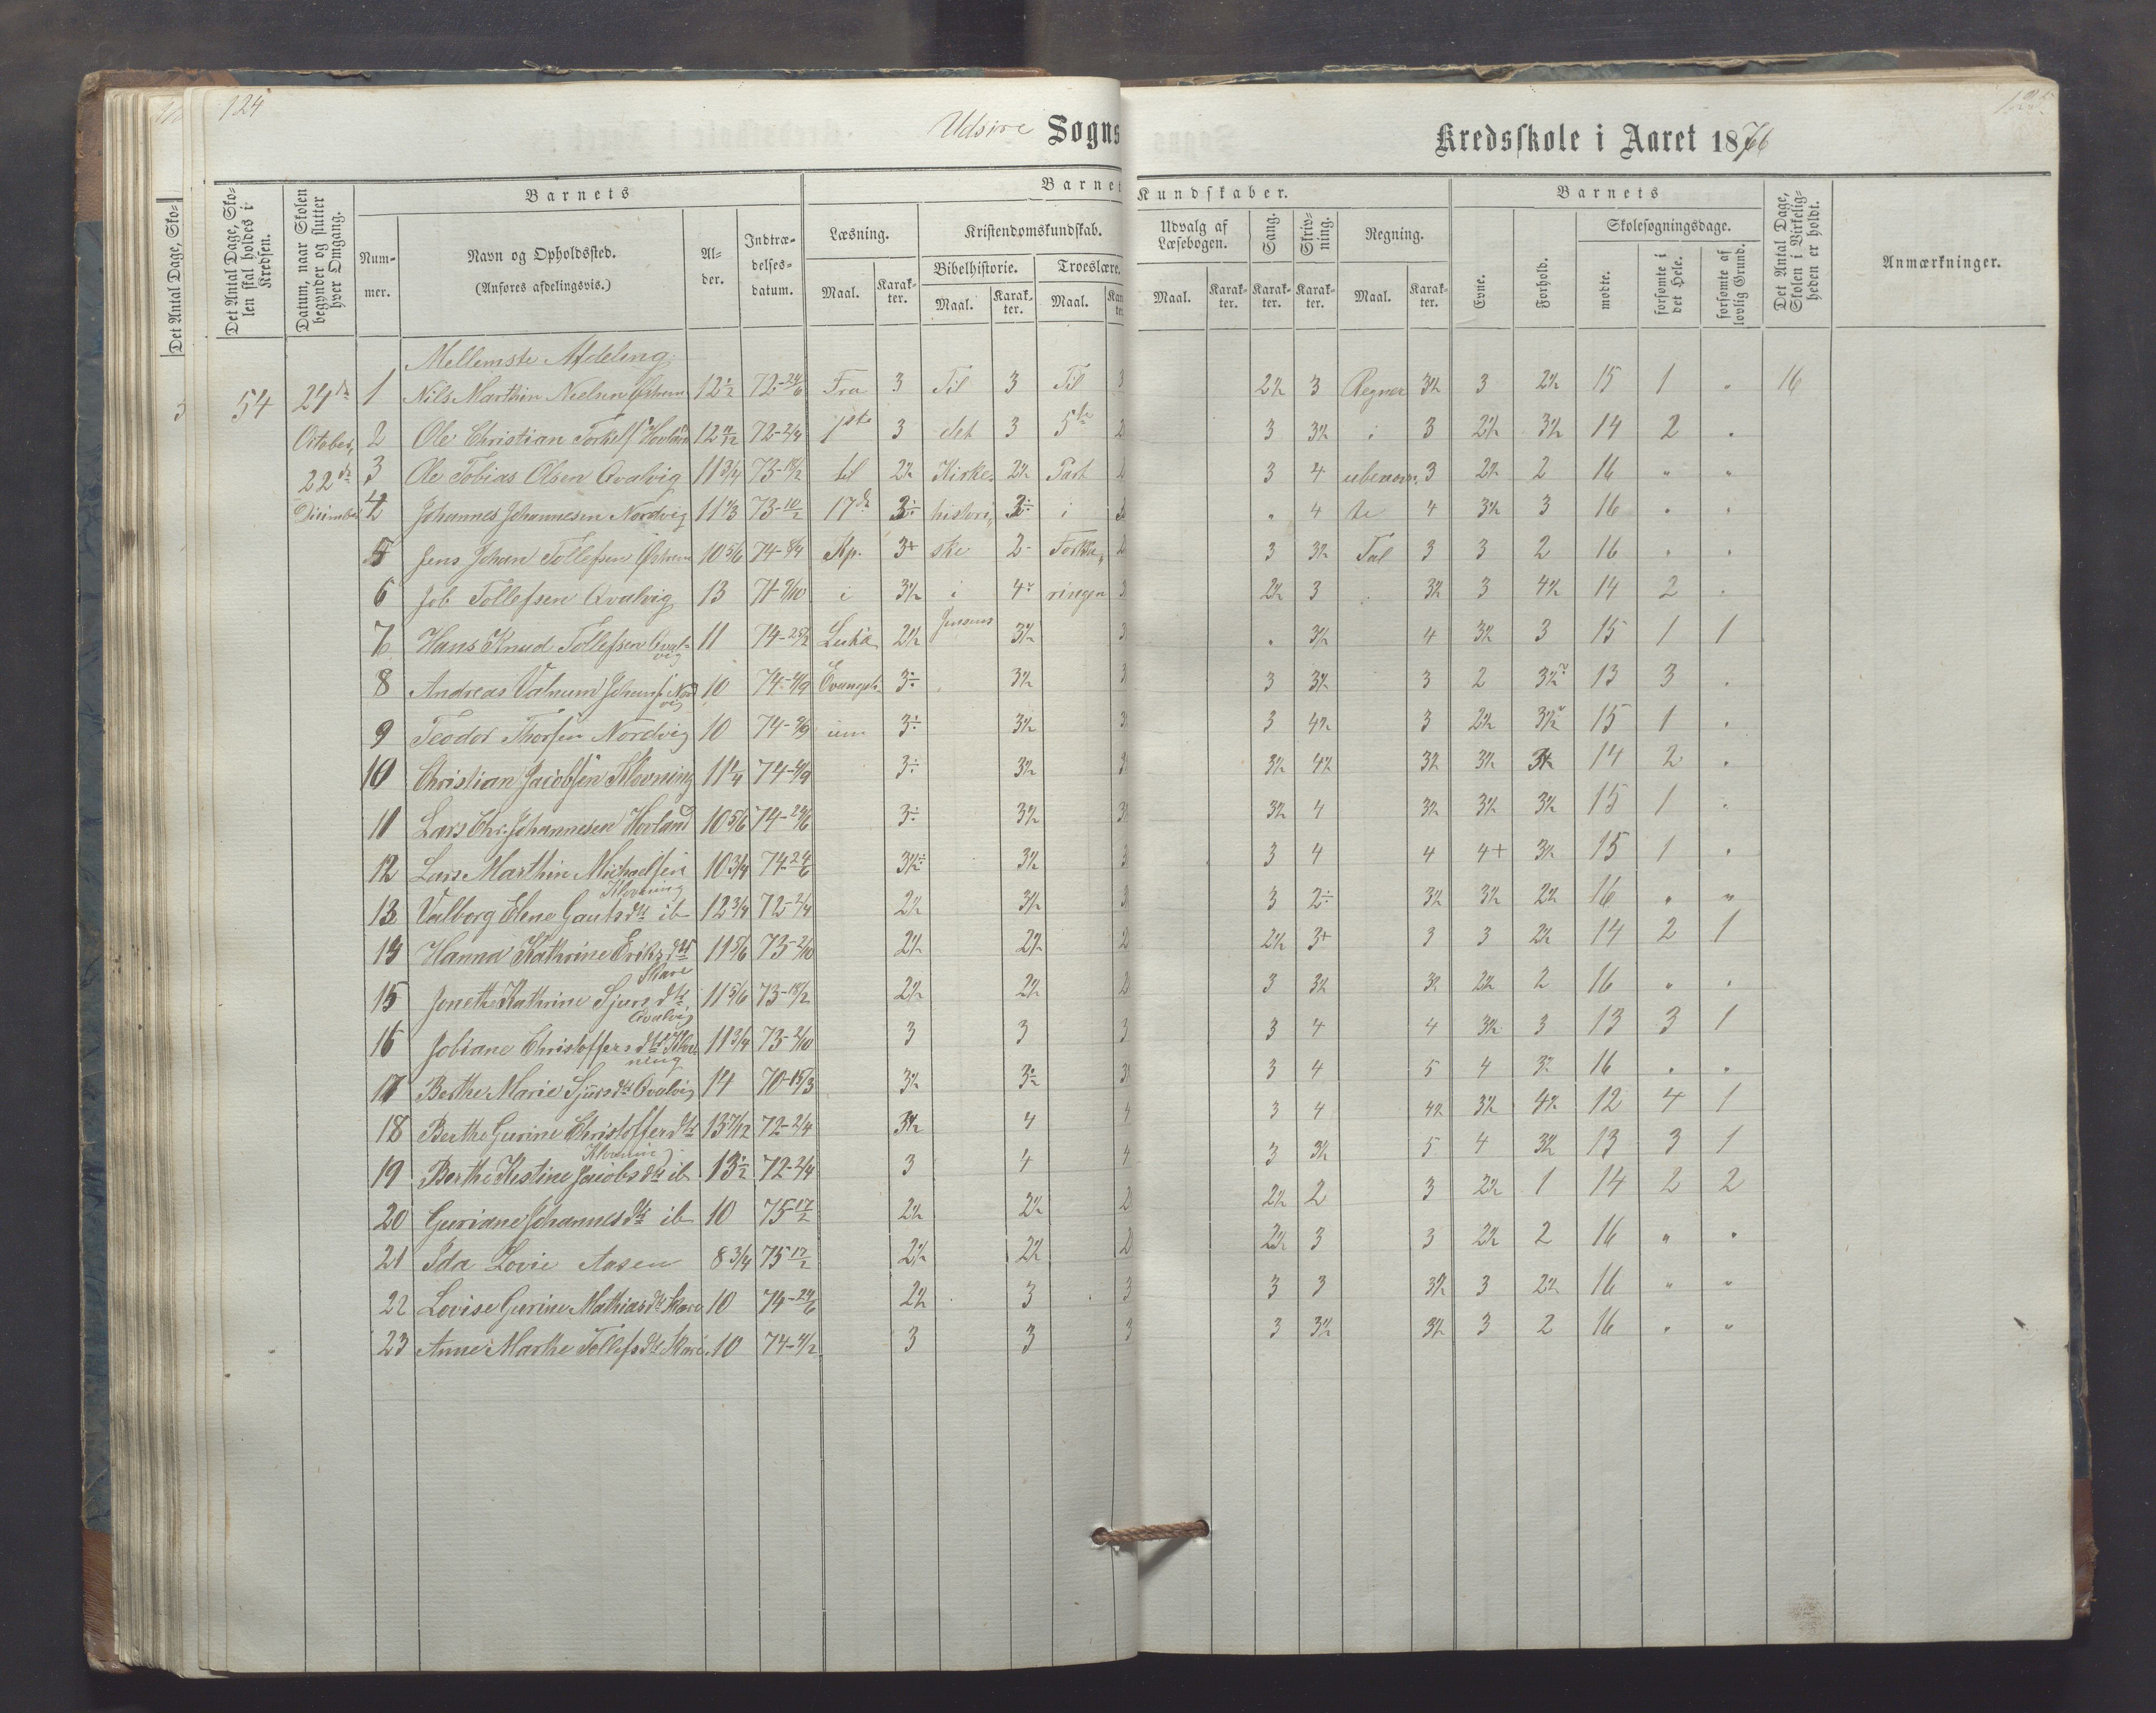 124
Udsire Sogns
Kredsskole i Aaret 1876
Det Antal Dage, Sko-
Det Antal Dage, Sko-
len skal holdes i
Kredsen.
Datum, naar Skolen
begynder og slutter
hver Omgang.
Barnets
Num-
mer.
Navn og Opholdssted.
(Anføres afdelingsvis.)
Al-
der.
Indtræ-
delses-
datum.
Barnet
Læsning.
Maal.
Karak-
ter.
Kristendomskundskab.
Bibelhistorie.
Maal.
Karak-
ter.
Troeslære.
Maal.
Kundskaber.
Udvalg af
Læsebogen.
Maal.
Karak-
ter.
Sang.
Karak-
ter.
Skriv-
ning.
Karak-
ter.
Regning.
Maal.
Karak-
ter.
Barnets
Evne.
Forhold.
Skolesøgningsdage.
mødte.
forsømte i
det Hele.
forsømte af
lovlig Grund.
Det Antal Dage,
Skolen i Virkelig-
heden er holdt.
Anmærkninger.
Mellemste Afdeling.
54 1 Nils Marthin Nielsen 12 1/2 72-24/6 Fra 3 Til 3 Til 3 2½ 3 Regner 3½ 3 2½ 15 1 " 16
October, 2 Ole Christian Torkels. Hovland 72-2/4 1ste 3 det 3 5te 3 3½ i 3 2½ 3½ 14 2 "
22de 3 Ole Tobias Olsen Qvalvig 11 3/4 73-18/2 til 2½ Kirke- 2½ Part 3 4 ubenævn 3 2½ 2 16 " "
December 4 Johannes Johannesen Nordvig 73-10/2 17de 3÷ histori 3÷ i " 4 te 4 3½ 3 16 " "
5 Jens Johan Tollefsen 10 5/6 Kp. 3+ ske 2- Forkla 3 3½ Tal 3 3 2 16 " "
6 Job Tollefsen Qvalvig 13 i 3½ i ringen 2½ 3 3½ 3 4½ 14 2 "
7 Hans Knud Tollefsen Qval-
vig 11 Lukä 2½ Jensens 3½ 3 " 3½ 4 3½ 3 15 1 1
8 Andreas Valnum Nord
vig 10 Evangeli 3÷ 3½ 3 3 3½ 3 2 13 3 "
9 Teodor Thorsen Nordvig 10 um 3÷ 3½ 3 4½ 3 2½ 15 1 "
10 Christian Jacobsen Klovning 11 1/4 3÷ 3½ 3½ 4½ 3½ 3½ 14 2 "
11 Lars Chr. Johannesen Hovland 10 5/6 3÷ 3½ 3½ 4 3½ 3½ 3½ 15 1 "
12 Lars Marthin Michaelsen
Klovning 10 3/4 74-24/6 3½÷ 3½ 3 3 4 4 4+ 3½ 15 1 "
13 Valborg Elene Gautsdtr ib 12 3/4 72-2/4 2½ 3½ 3 3 2÷ 3½ 3½ 2½ 16 " "
14 Hanna Kathrine Eriksdtr
Skare 11 5/6 73-2/10 2½ 2½ 2½ 3+ 3 3 2½ 14 2 1
15 Jonethe Kathrine Sjursdtr
Qvalvig 11 5/6 73-18/2 2½ 2½ 3 3½ 3½ 2½ 2 16 " "
16 Jobiane Christoffersdtr Klov-
ning 11 3/4 73-2/10 3 3 3 3 4 4 3½ 3 13 3 1
17 Berthe Marie Sjursdtr Qvalvig 14 70-15/3 3½ 3 4 5 4 16 " "
18 Berthe Gurine Christoffersdtr
Klovning 13 7/12 72-2/4 3½ 4 4 3 4 4½ 3½ 4½ 12 4 1
19 Berthe Kistine Jacobsdtr ib 13 1/2 72-2/4 3 4 4 3 3½ 5 4 3½ 13 3 1
20 Guriane Johannesdtr ib 10 75-17/2 2½ 2½ 2½ 2 3 2½ 1 14 2 2
21 Ida Lovie Aasen 8 3/4 75 17/2 2½ 2½ 2½ 3 3 2½ 2 16 " "
22 Lovise Gurine Mathiasdtr Skare 10 74-24/6 2½ 3 3 3 3 3½ 3 2½ 16 " "
23 Anne Marthe Tollefsdtr Skare 10 3 3 3 3 3½ 3½ 3 2 16 " "